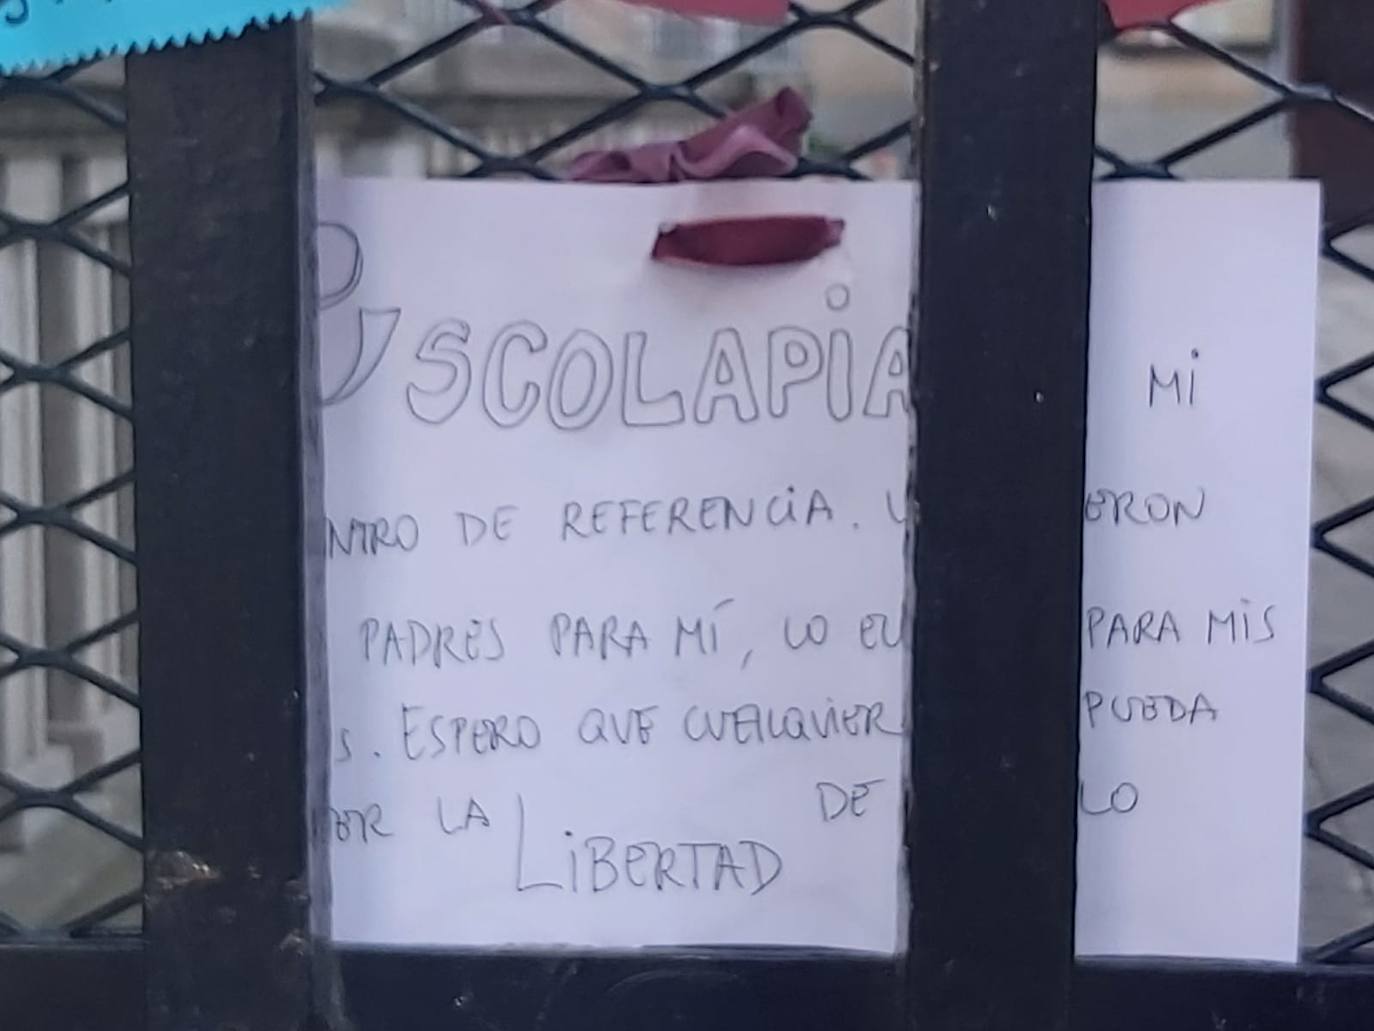 ESCOLAPIA MI
NTRO DE REFERENCIA. ERON
PADRES PARA MÍ, LO PARA MIS
S. ESPERO QUE CUALQUIER PUEDA
ER LA LIBERTAD DE LO